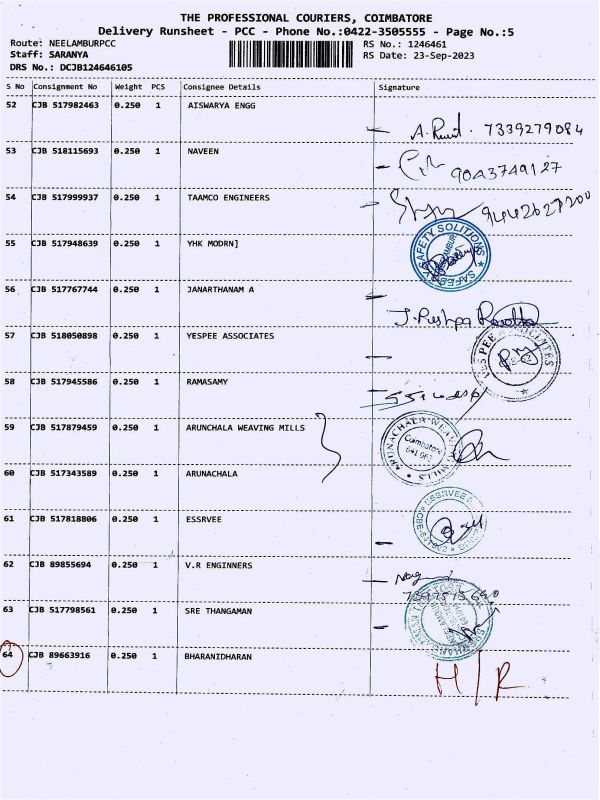 THE PROFESSIONAL COURIERS, COIMBATORE
Delivery Runsheet - PCC - Phone No.:0422-3505555 - Page No.:5
Route: NEELAMBURPCC RS No.: 1246461
Staff: SARANYA RS Date: 23-Sep-2023
DRS No.: DCJB124646105
S No Consignment No Weight PCS Consignee Details Signature
52 CJB 517982463 0.250 1 AISWARYA ENGG
7339279084
53 CJB 518115693 0.250 1 NAVEEN
9043749127
54 CJB 517999937 0.250 1 TAAMCO ENGINEERS
9442627200
55 CJB 517948639 0.250 1 YHK MODRN]
SAFETY SOLITIONS
56 CJB 517767744 0.250 1 JANARTHANAM A
J. Pushpa
57 CJB 518050898 0.250 1 YESPEE ASSOCIATES
58 CJB 517945586 0.250 1 RAMASAMY
59 CJB 517879459 0.250 1 ARUNCHALA WEAVING MILLS
ARUNACHALA WEAVING MILLS
Coimbatore
60 CJB 517343589 0.250 1 ARUNACHALA
61 CJB 517818806 0.250 1 ESSRVEE
ESSRVEE
62 CJB 89855694 0.250 1 V.R ENGINNERS
63 CJB 517798561 0.250 1 SRE THANGAMAN
64 CJB 89663916 0.250 1 BHARANIDHARAN
H/R